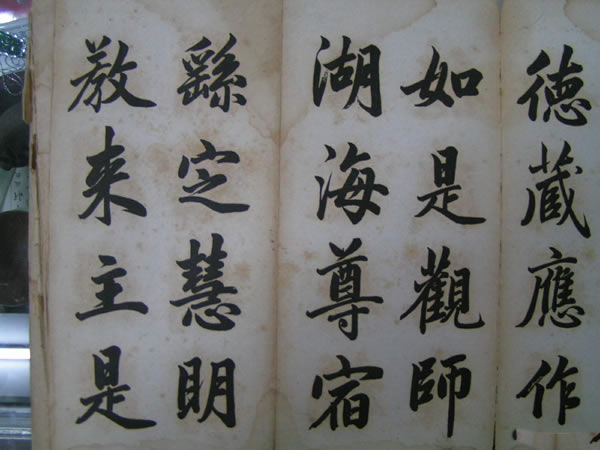 德藏應作
如是觀師
湖海尊宿
繇定慧明
教来主是